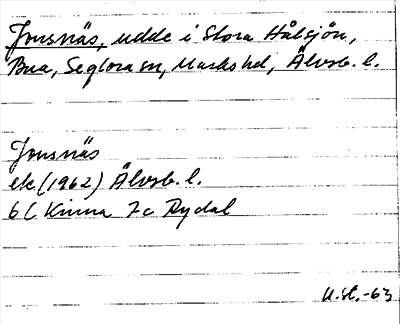 Jonsnäs, udde i Stora Hålsjön,
Bua, Seglora sn, Marks hd, Älvsb. l.
Jonsnäs
ek (1962) Älvsb. l.
6 C Kinna 7c Rydal
U.St.-63